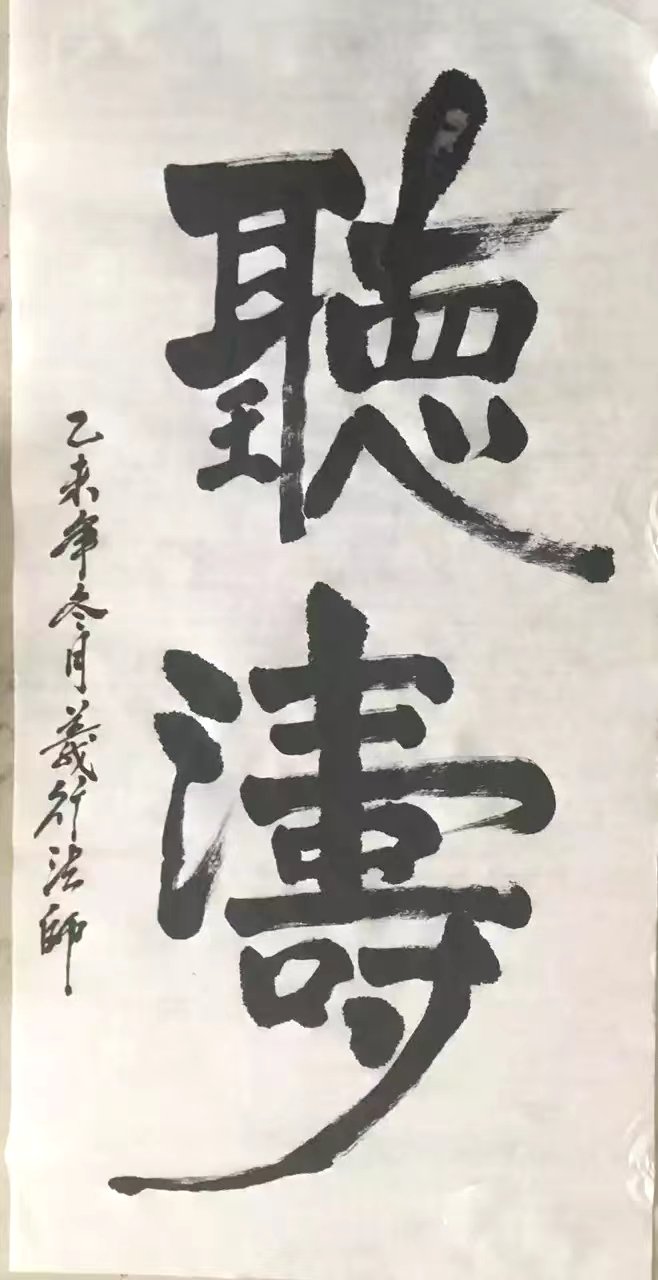 聽濤
乙未年冬月義行法師